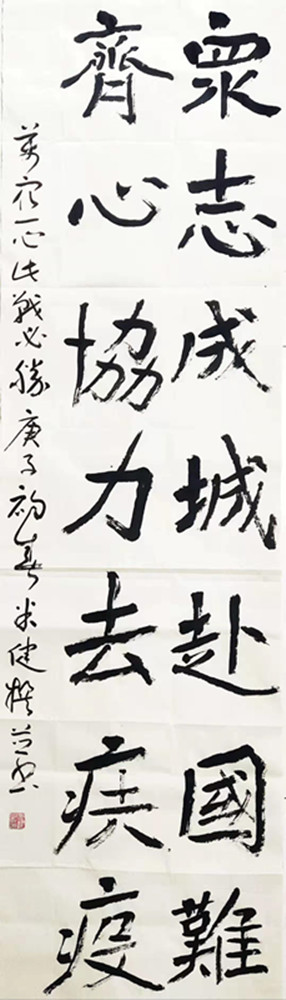 眾志成城赴國難
齊心協力去疾疫
萬衆一心此戰必勝庚子初春米健撰并書